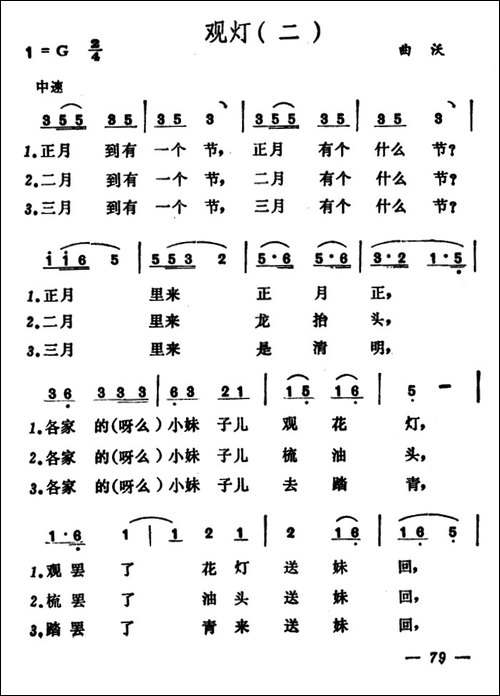 观灯(二)
1=G 2/4 曲沃
中速
3 5 5 3 5 | 3 5 3 | 3 5 5 3 5 | 3 5 3 |
1.正月 到有 一个 节, 正月 有个 什么 节?
2.二月 到有 一个 节, 二月 有个 什么 节?
3.三月 到有 一个 节, 三月 有个 什么 节?
i i 6 5 | 5 5 3 2 | 5·6 5·6 | 3·2 1·5 |
1.正月 里来 正月 正,
2.二月 里来 龙抬 头,
3.三月 里来 是清 明,
3 6 3 3 3 | 6 3 2 1 | 1 5 1 6 | 5 - |
1.各家 的(呀么)小妹 子儿 观 花 灯,
2.各家 的(呀么)小妹 子儿 梳 油 头,
3.各家 的(呀么)小妹 子儿 去 踏 青,
1·6 1 | 1 2 1 | 2 1 6 | 1 6 5 |
1.观罢 了 花灯 送妹 回,
2.梳罢 了 油头 送妹 回,
3.踏罢 了 青来 送妹 回,
— 79 —